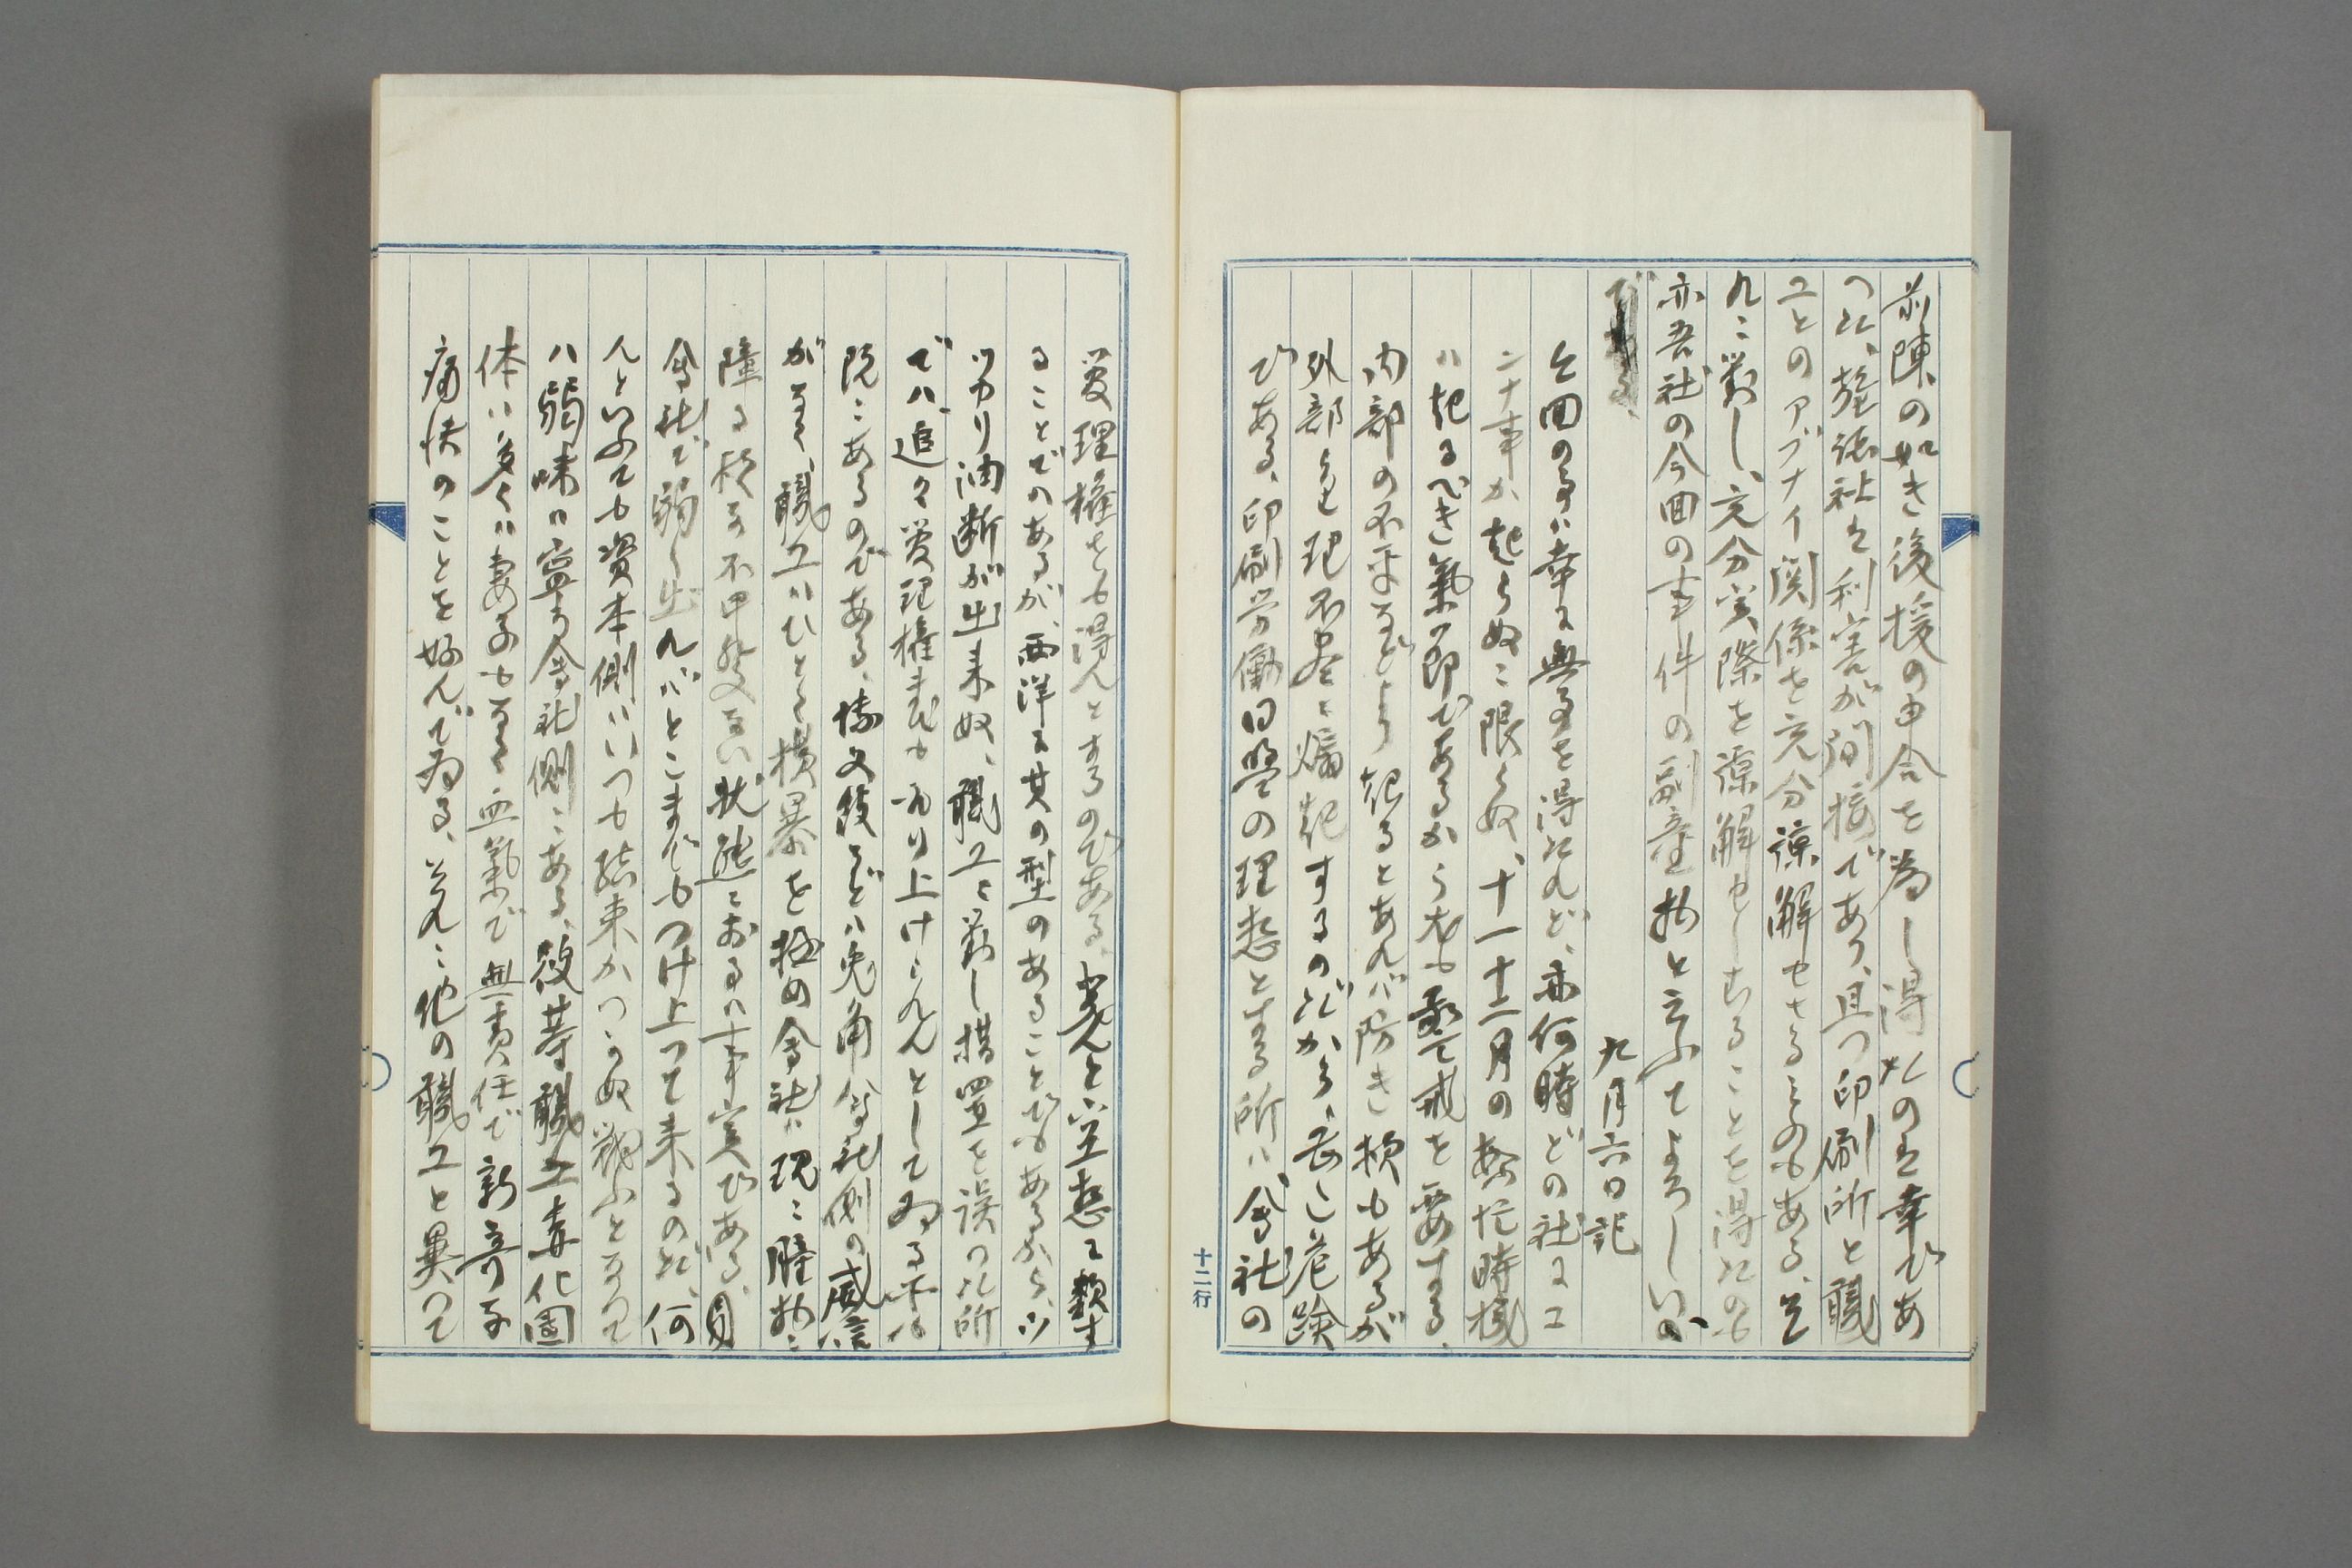 前陳の如き後援の申合を為し得たのは幸であ
つた、雑誌社は利害が間接であり、且つ印刷所と職
工とのアブナイ関係を充分諒解せざるものもある、そ
れに対し、充分実際を諒解せしむることを得たのも
亦吾社の今回の事件の副産物と云ふてよろしいの
である、
九月六日記
今回の事ハ幸に無事を得たれど、亦何時どの社にコ
ンナ事が起らぬに限らぬ、十一十二月の繁忙時機
ハ起るべき気の節であるから尤も警戒を要する、
内部の不平などより起るとあれバ防き様もあるが
外部より理不尽に煽起するのだから、甚しく危険
である、印刷労働同盟の理想とする所ハ、会社の
管理権をも得んとするのである、実ハ空想に類す
ることでのあるが、西洋に其の型のあることでもあるから、ツ
ツカリ油断が出来奴、職工に対し措置を誤つた所
でハ、追々管理権までも乗り上げられんとして為る
既にあるのである、博文館などハ兎角会社側の威信
がなく、職工ハひとく横暴を極め会社ハ現に腫物に
障る様な不甲斐ない状態におるハ事実である、
会社で弱く出れバどこまでもつけ上つて来るのだ、何
んといふても資本側ハいつも結束がつかぬ戦ふとなつて
ハ弱味ハ寧ろ会社側にある、彼等職工毒化団
体ハ多くハ妻子もなく血気で無責任で新奇な
痛快のことを好んで為る、それに他の職工と異つて
十二行